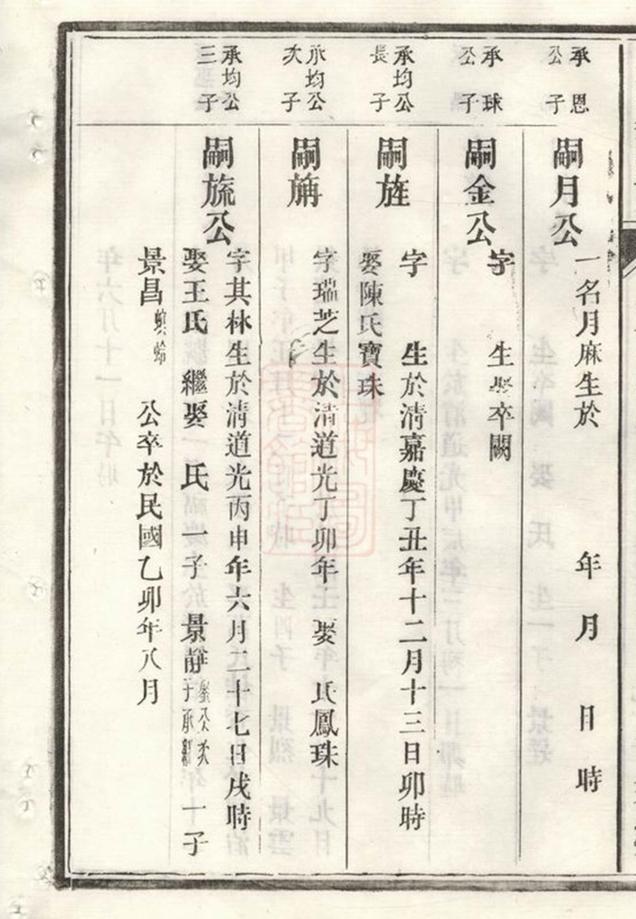 承恩
公子
嗣月公
一名月麻生於 年 月 日 時
承球
公子
嗣金公
字 生 娶 卒 闕
承均公
長子
嗣旌
字 生於清嘉慶丁丑年十二月十三日卯時
娶陳氏寶珠
承均公
次子
嗣旃
字瑞芝生於清道光丁卯年 娶 氏鳳珠
承均公
三子
嗣旒公
字其林生於清道光丙申年六月二十七日戌時
娶王氏繼娶 氏 一子 景靜 公次
子承繼 一子
景昌 螟蛉 公卒於民國乙卯年八月